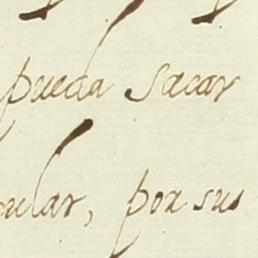 pueda sacar
ular, por sus